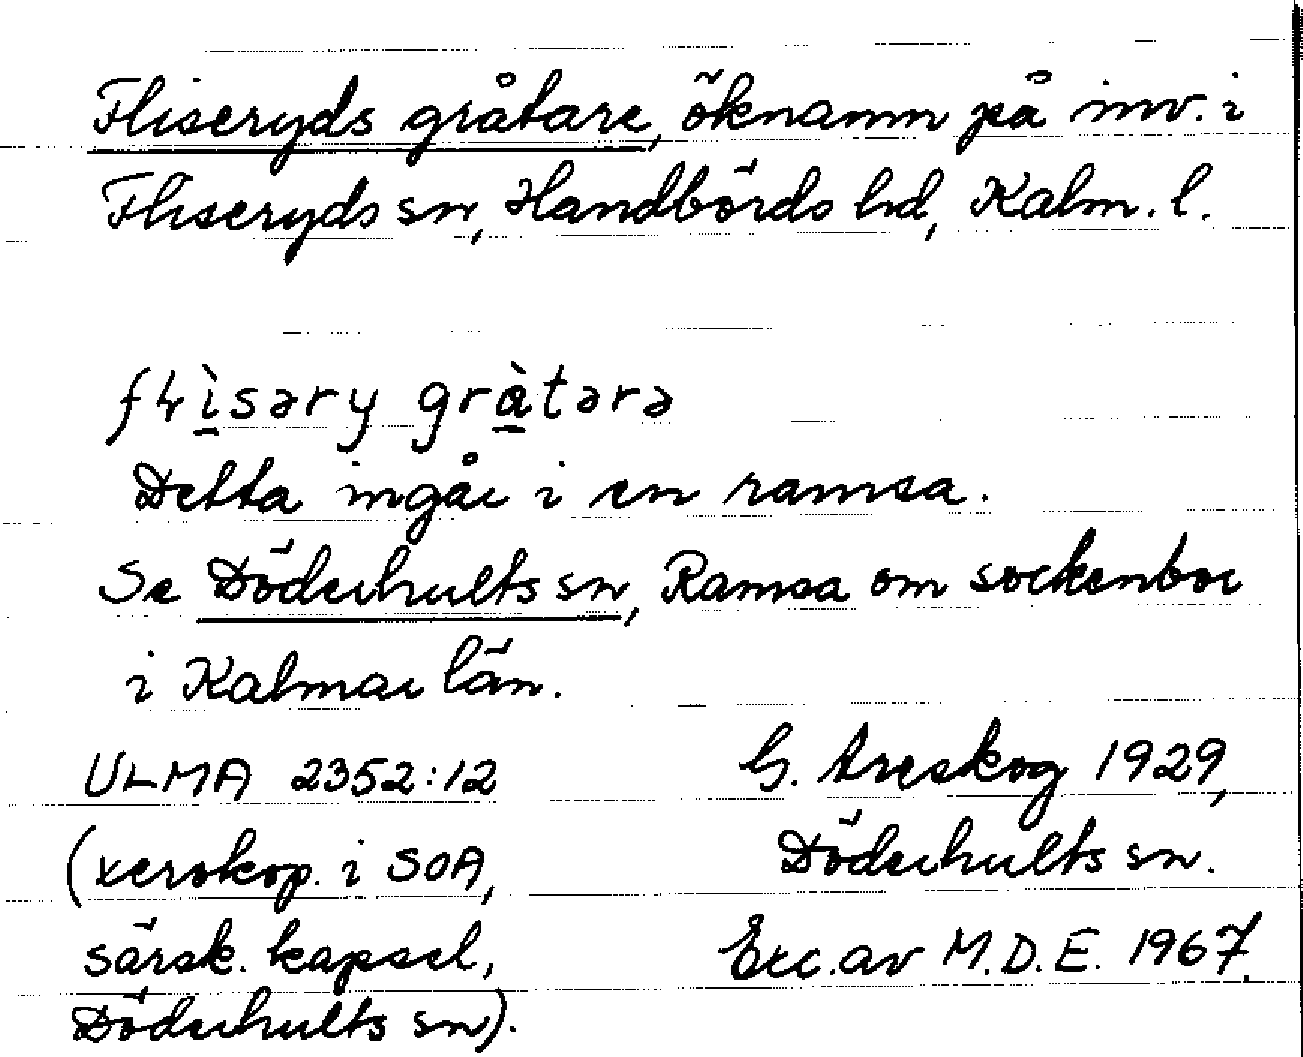 Fliseryds gråtare, öknamn på inv. i
Fliseryds sn, Handbörds hd, Kalm. l.
Detta ingår i en ramsa.
Se Döderhults sn, Ramsa om sockenbor
i Kalmar län.
ULMA 2352:12
G. Areskog 1929,
(xerokop. i SOA,
Döderhults sn.
särsk. kapsel,
Exc. av M.D.E. 1967.
Döderhults sn).